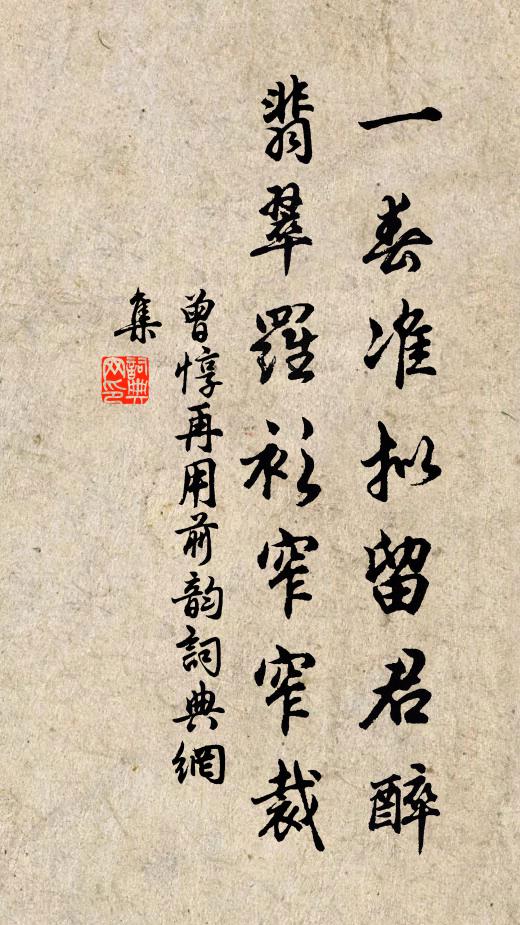 一春准拟留君醉
翡翠羅衫窄窄裁
曾惇再用前韵詞典網
集
詞典
网印